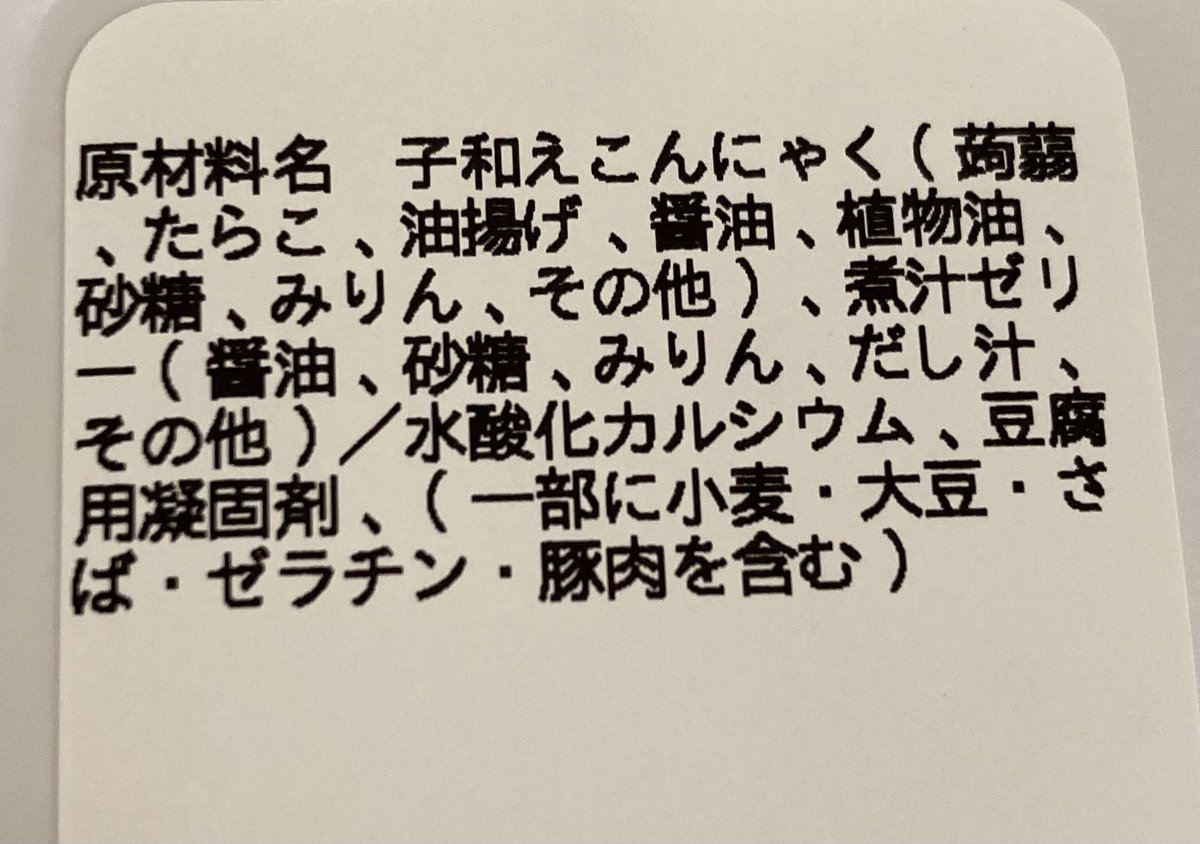 原材料名　子和えこんにゃく(蒟蒻
、たらこ、油揚げ、醤油、植物油、
砂糖、みりん、その他)、煮汁ゼリ
ー(醤油、砂糖、みりん、だし汁、
その他)／水酸化カルシウム、豆腐
用凝固剤、(一部に小麦・大豆・さ
ば・ゼラチン・豚肉を含む)